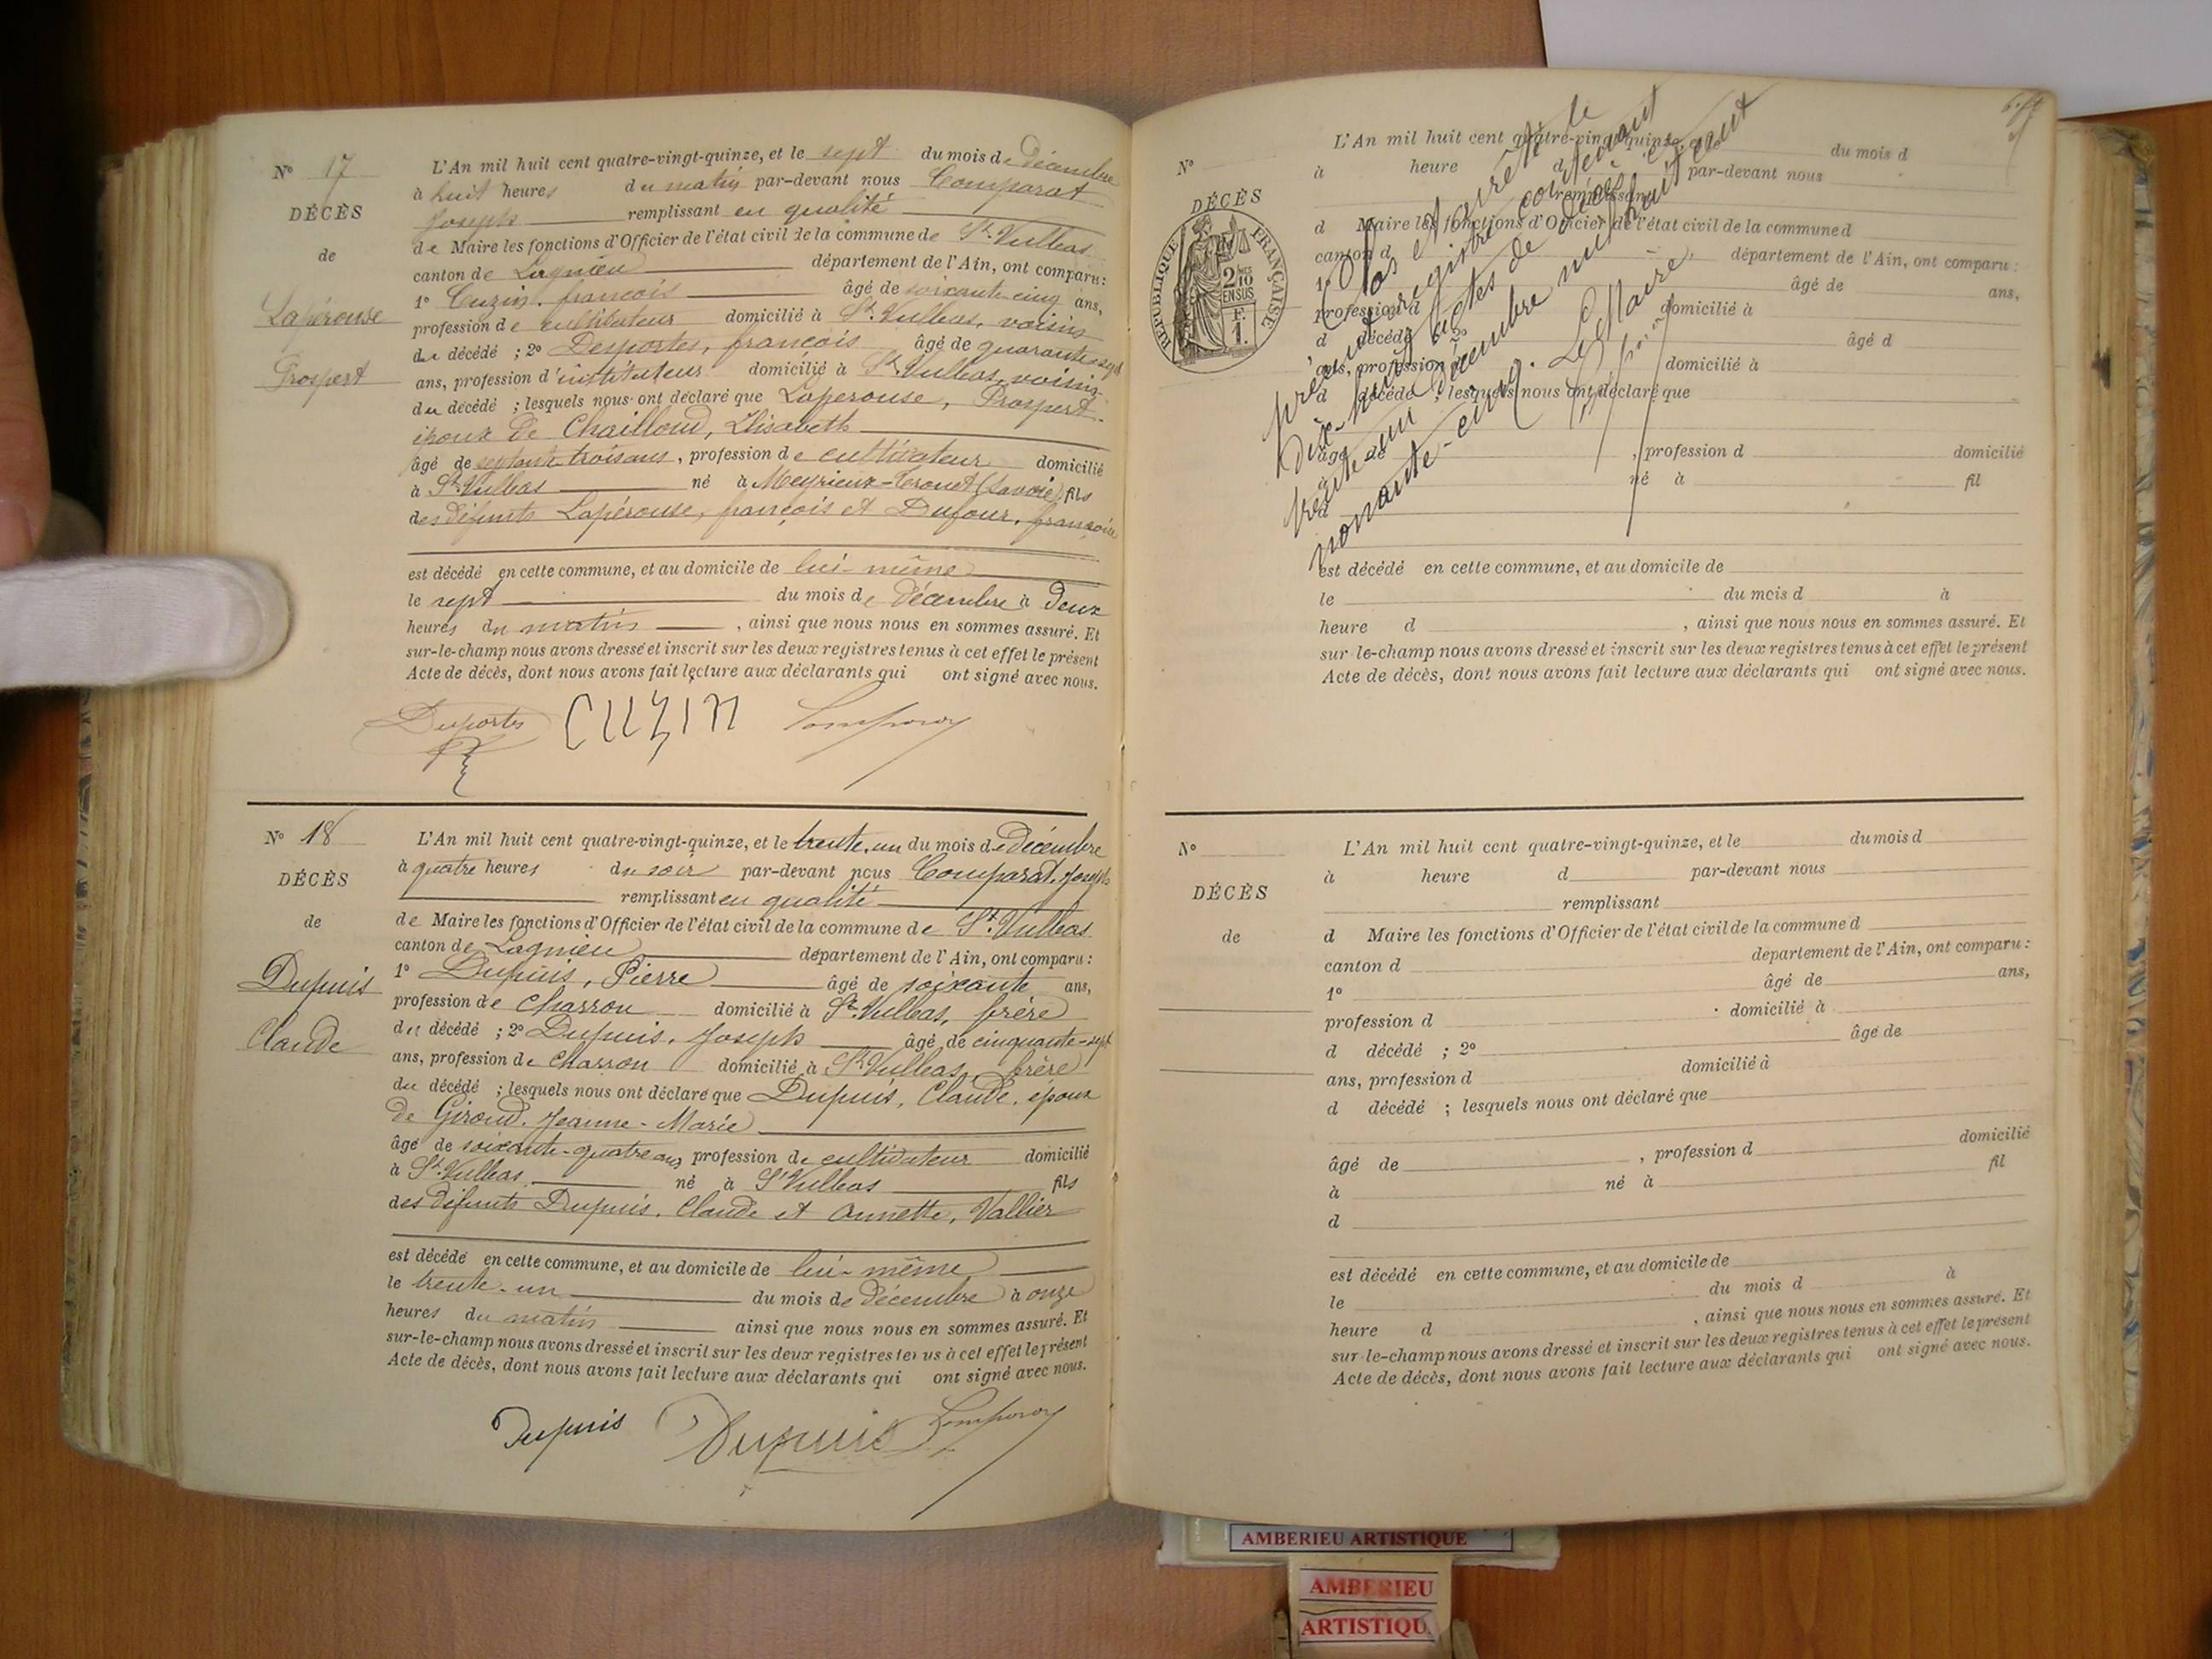 Nº 17
DÉCÈS
de
Lapérouse
Prospert
L'An mil huit cent quatre-vingt-quinze, et le sept du mois de Décembre
à huit heures du matin par-devant nous Comparat
Joseph remplissant en qualité
de Maire les fonctions d'Officier de l'état civil de la commune de St. Vulbas
canton de Lagnieu département de l'Ain, ont comparu:
1º Cuzin, françois âgé de soixante-cinq ans,
profession de cultivateur domicilié à St. Vulbas, voisin
du décédé ; 2º Desportes, françois âgé de quarante-sept
ans, profession d'instituteur domicilié à St. Vulbas, voisin
du décédé ; lesquels nous ont déclaré que Laperouse, Prospert
époux de Chailloud, Elisabeth
âgé de septante-trois ans, profession de cultivateur domicilié
à St. Vulbas né à Meyrieux-Trouet (Savoie) fils
des défunts Lapérouse, françois et Dufour, françoise
est décédé en cette commune, et au domicile de lui-même
le sept du mois de Décembre à deux
heures du matin, ainsi que nous nous en sommes assuré. Et
sur-le-champ nous avons dressé et inscrit sur les deux registres tenus à cet effet le présent
Acte de décès, dont nous avons fait lecture aux déclarants qui ont signé avec nous.
Desportes CUZIN Comparat
Nº 18
DÉCÈS
de
Dupuis
Claude
L'An mil huit cent quatre-vingt-quinze, et le trente-un du mois de Décembre
à quatre heures du soir par-devant nous Comparat, Joseph
remplissant en qualité
de Maire les fonctions d'Officier de l'état civil de la commune de St. Vulbas
canton de Lagnieu département de l'Ain, ont comparu:
1º Dupuis, Pierre âgé de soixante ans,
profession de Charron domicilié à St. Vulbas, frère
du décédé ; 2º Dupuis, Joseph âgé de cinquante-sept
ans, profession de Charron domicilié à St. Vulbas, frère
du décédé ; lesquels nous ont déclaré que Dupuis, Claude, époux
de Giroud, Jeanne-Marie
âgé de soixante-quatre ans profession de cultivateur domicilié
à St. Vulbas né à St Vulbas fils
des défunts Dupuis, Claude et Annette, Vallier
est décédé en cette commune, et au domicile de lui-même
le trente-un du mois de Décembre à onze
heures du matin ainsi que nous nous en sommes assuré. Et
sur-le-champ nous avons dressé et inscrit sur les deux registres tenus à cet effet le présent
Acte de décès, dont nous avons fait lecture aux déclarants qui ont signé avec nous.
Dupuis Dupuis Comparat
Nº
DÉCÈS
RÉPUBLIQUE FRANÇAISE
2/10 EN SUS
F. 1.
L'An mil huit cent quatre-vingt-quinze, et le du mois d
à heure d par-devant nous
remplissant
d Maire les fonctions d'Officier de l'état civil de la commune d
canton d département de l'Ain, ont comparu :
1º âgé de ans,
profession d domicilié à
d décédé ; 2º âgé d
ans, profession d domicilié à
d décédé ; lesquels nous ont déclaré que
âgé de , profession d domicilié
à né à fil
d
est décédé en cette commune, et au domicile de
le du mois d à
heure d , ainsi que nous nous en sommes assuré. Et
sur-le-champ nous avons dressé et inscrit sur les deux registres tenus à cet effet le présent
Acte de décès, dont nous avons fait lecture aux déclarants qui ont signé avec nous.
Clos et arrêté le
présent registre contenant
Dix-huit actes de décès, ce
trente-un Décembre mil huit cent
nonante-cinq. Le Maire,
Nº
DÉCÈS
de
L'An mil huit cent quatre-vingt-quinze, et le du mois d
à heure d par-devant nous
remplissant
d Maire les fonctions d'Officier de l'état civil de la commune d
canton d département de l'Ain, ont comparu :
1º âgé de ans,
profession d domicilié à
d décédé ; 2º âgé de
ans, profession d domicilié à
d décédé ; lesquels nous ont déclaré que
âgé de , profession d domicilié
à né à fil
d
est décédé en cette commune, et au domicile de
le du mois d à
heure d , ainsi que nous nous en sommes assuré. Et
sur-le-champ nous avons dressé et inscrit sur les deux registres tenus à cet effet le présent
Acte de décès, dont nous avons fait lecture aux déclarants qui ont signé avec nous.
AMBERIEU ARTISTIQUE
AMBERIEU
ARTISTIQU